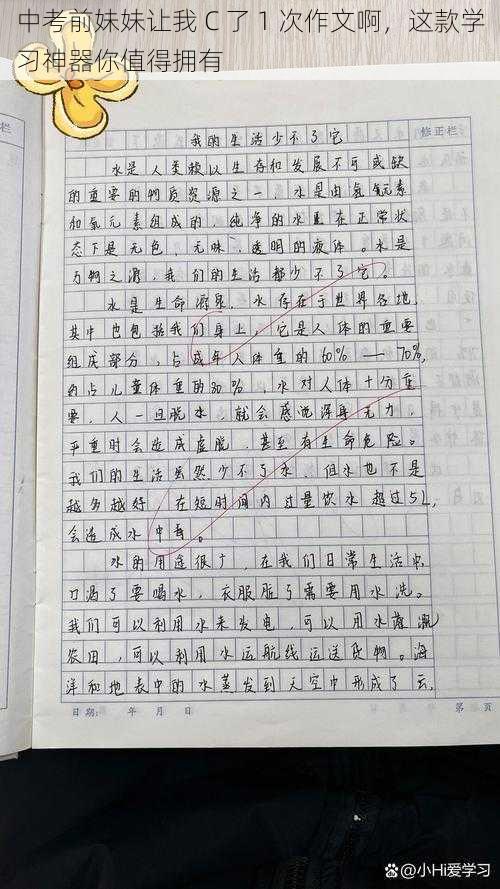 中考前妹妹让我 C 了 1 次作文啊，这款学
习神器你值得拥有
栏
修正栏
我的生活少不了它
水是人类赖以生存和发展不可或缺
的重要的物质资源之一，水是由氢元素
和氧元素组成的，纯净的水在正常状
态下是无色，无味，透明的液体。水是
万物之源，我们的生活都少不了它。
水是生命源泉，水存在于世界各地，
其中也包括我们身上，它是人体的重要
组成部分，占成年人体重的60%—70%，
约占儿童体重的80%，水对人体十分重
要，人一旦脱水，就会感觉浑身无力，
严重时会造成虚脱，甚至有生命危险。
我们的生活虽然少不了水，但水也不是
越多越好，在短时间内过量饮水超过5L，
会造成水中毒。
水的用途很广，在我们日常生活中
口渴了要喝水，衣服脏了需要用水洗。
我们可以利用水来发电，可以用水灌溉
农田，可以利用水运航线运送货物。海
洋和地表中的水蒸发到天空中形成了云，
日期： 年 月 日
第 页
小Hi爱学习